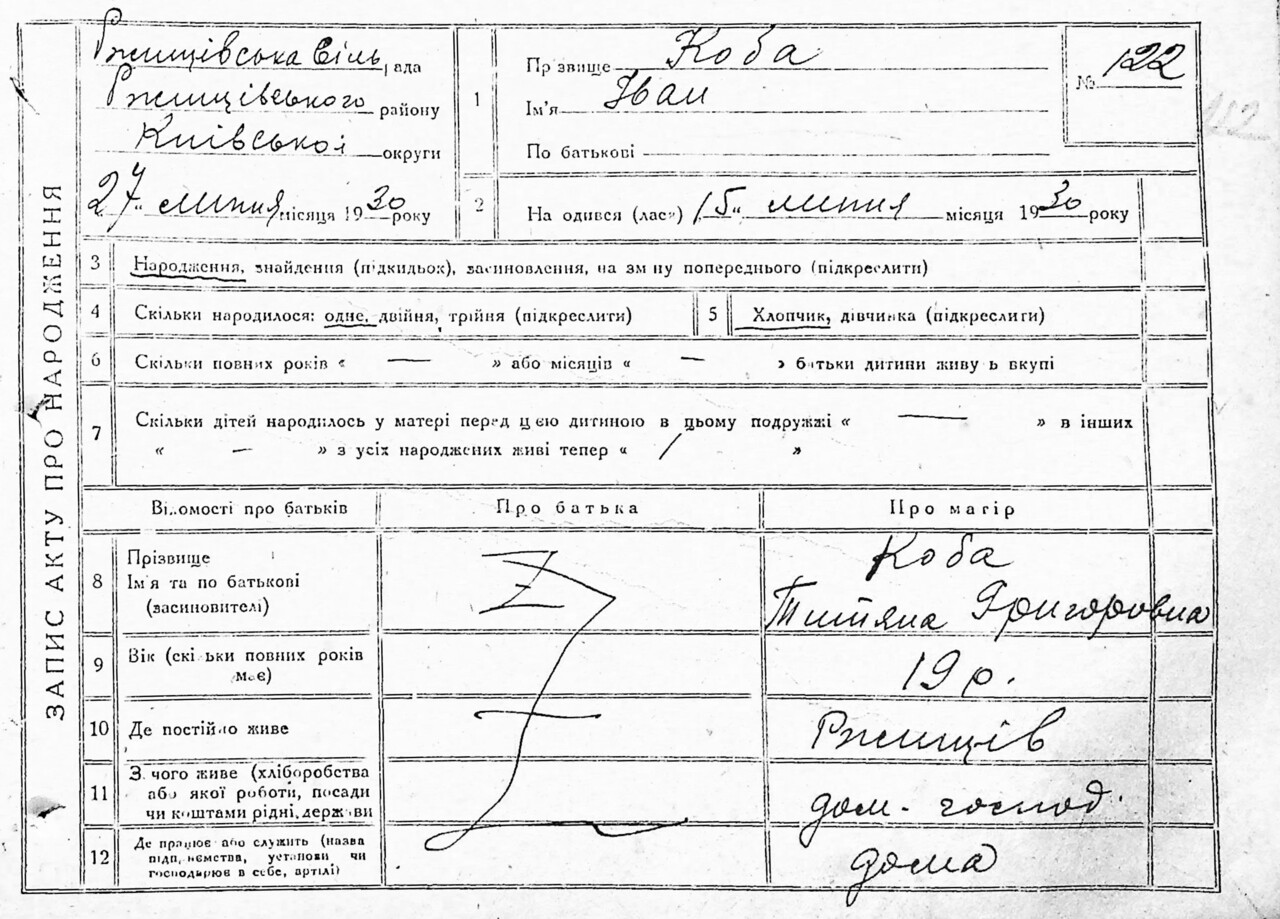 ЗАПИС АКТУ ПРО НАРОДЖЕННЯ
Ржищівська Сіль рада
Ржищівського району
Київської округи
27 липня місяця 1930 року
1
Прзвище Коба
Ім'я Іван
По батькові
№ 122
112
2 На одився (лась) 15 липня місяця 1930 року
3 Народження, знайдення (підкидьок), засиновлення, на зм ну попереднього (підкреслити)
4 Скільки народилося: одне, двійня, трійня (підкреслити)
5 Хлопчик, дівчинка (підкреслити)
6 Скільки повних років « — » або місяців « — » батьки дитини живу ь вкупі
7 Скільки дітей народилось у матері перед цею дитиною в цьому подружжі « — » в інших
« — » з усіх народжених живі тепер « / »
Відомості про батьків Про батька Про матір
8 Прізвище
Ім'я та по батькові
(засиновителі)
Коба
Титяна Григоровна
9 Вік (скі ьки повних років
має)
19 р.
10 Де постійно живе Ржищів
11 З чого живе (хліборобства
або якої роботи, посади
чи коштами рідні, держави
дом- господ.
12 Де працює або служить (назва
підп, ємства, установи чи
господарює в себе, артілі)
дома